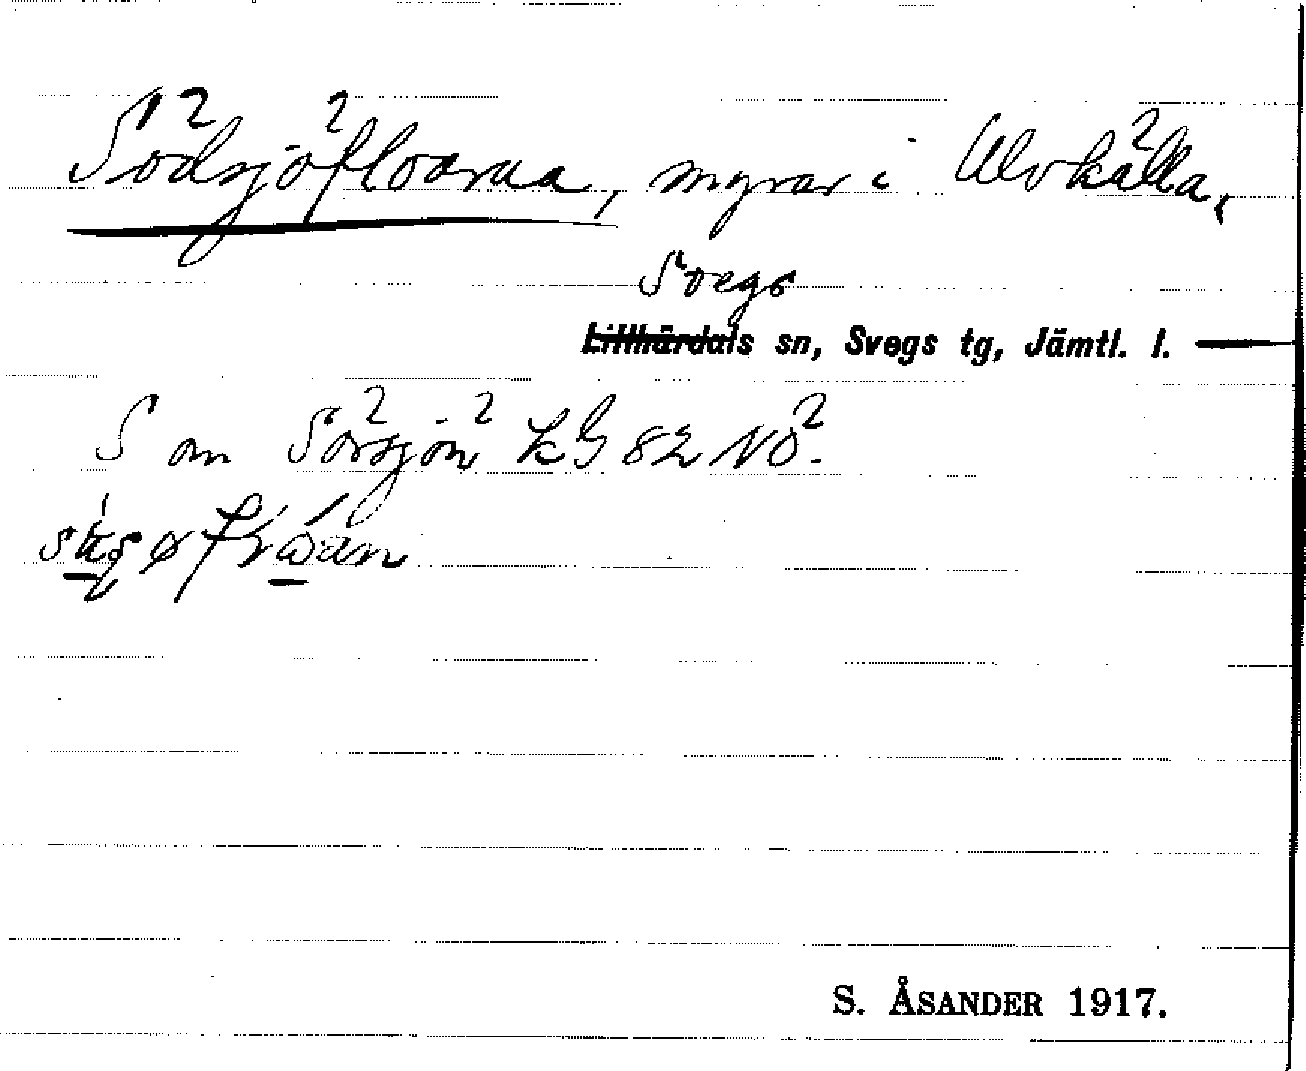 Södsjöfloarna, myrar i Ulvkälla,
Svegs
Lillhärdals sn, Svegs tg, Jämtl. l.
S om Sörsjön kG 82 NÖ.
S. ÅSANDER 1917.